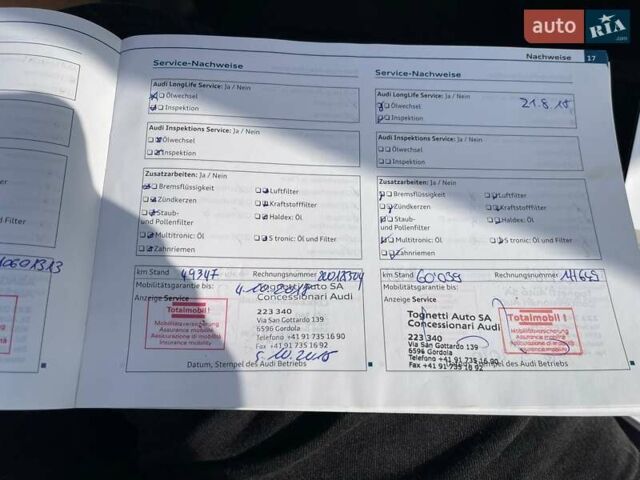 auto RIA.com
Nachweise 17
Service-Nachweise
Audi LongLife Service: Ja / Nein
Ölwechsel
Inspektion
Audi Inspektions Service: Ja / Nein
Ölwechsel
Inspektion
Zusatzarbeiten: Ja / Nein
Bremsflüssigkeit
Luftfilter
Zündkerzen
Kraftstofffilter
Staub-
und Pollenfilter
Haldex: Öl
Multitronic: Öl
S tronic: Öl und Filter
Zahnriemen
km Stand 49347 Rechnungsnummer
Mobilitätsgarantie bis:
Anzeige Service
Totalmobil !
Mobilitätsversicherung
Assurance mobilité
Assicurazione di mobilità
Insurance mobility
Tognetti Auto SA
Concessionari Audi
223 340
Via San Gottardo 139
6596 Gordola
Telefono +41 91 735 16 90
Fax +41 91 735 16 92
Datum, Stempel des Audi Betriebs
Service-Nachweise
Audi LongLife Service: Ja / Nein
Ölwechsel
21.8.18
Inspektion
Audi Inspektions Service: Ja / Nein
Ölwechsel
Inspektion
Zusatzarbeiten: Ja / Nein
Bremsflüssigkeit
Luftfilter
Zündkerzen
Kraftstofffilter
Staub-
und Pollenfilter
Haldex: Öl
Multitronic: Öl
S tronic: Öl und Filter
Zahnriemen
km Stand Rechnungsnummer
Mobilitätsgarantie bis:
Anzeige Service
Tognetti Auto SA
Concessionari Audi
223 340
Via San Gottardo 139
6596 Gordola
Telefono +41 91 735 16 90
Fax +41 91 735 16 92
Totalmobil !
Mobilitätsversicherung
Assurance mobilité
Assicurazione di mobilità
Insurance mobility
Stempel des Audi Betriebs
nd Filter